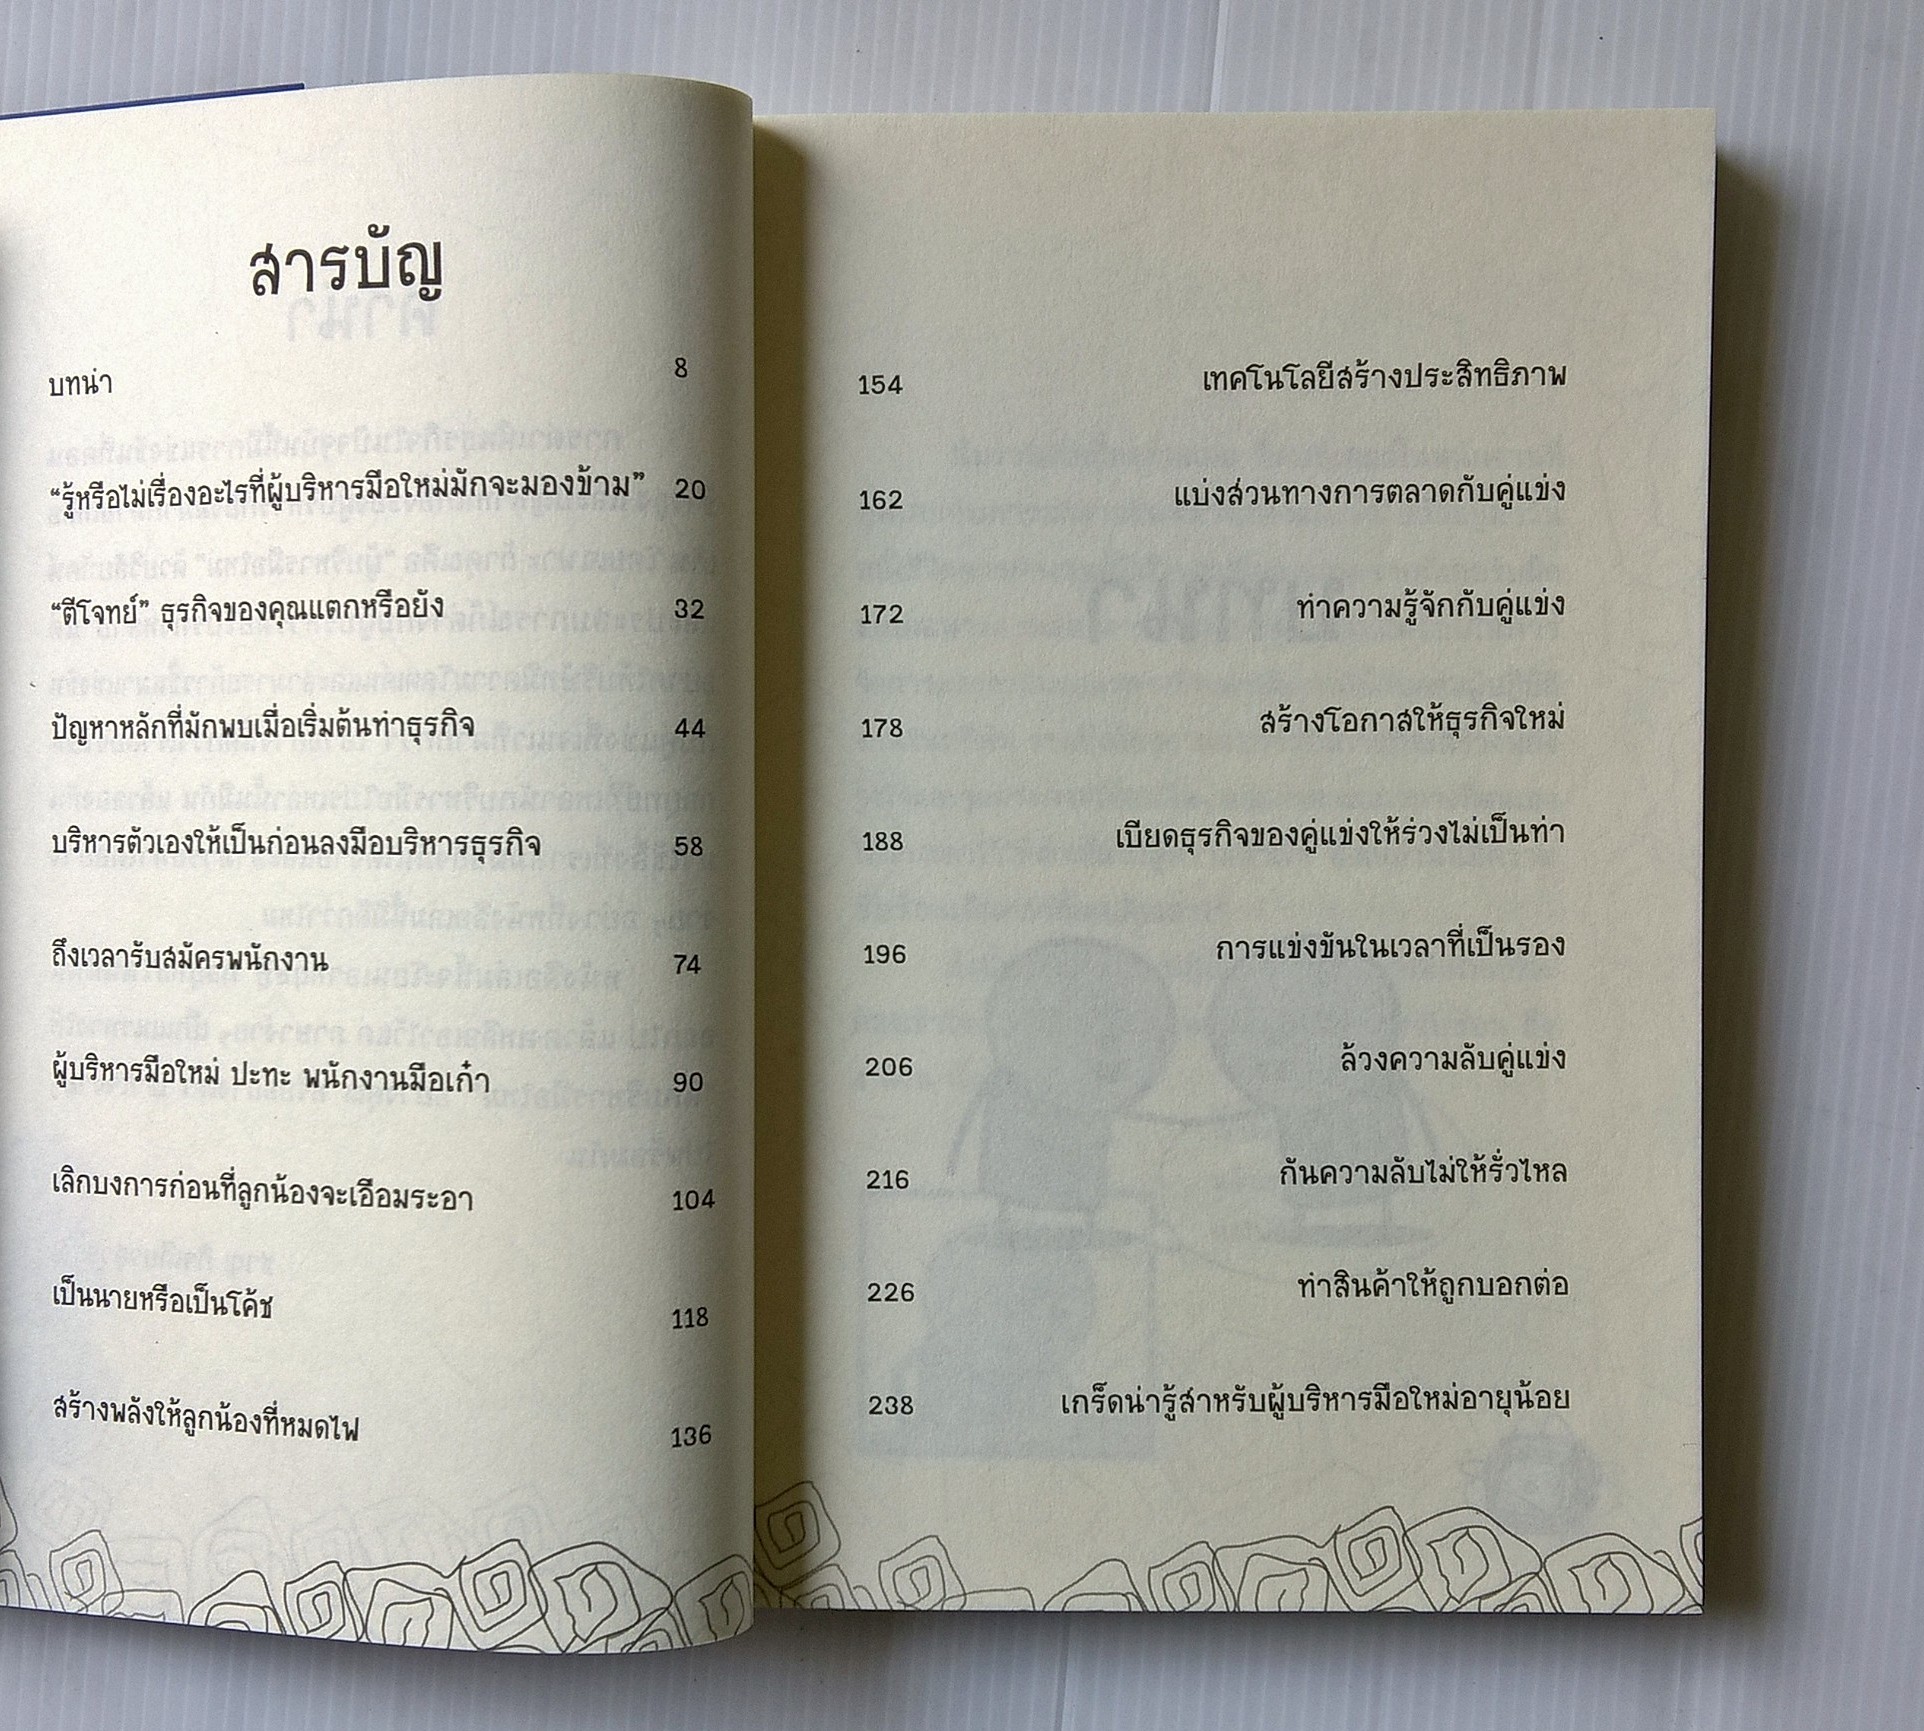 สารบัญ
บทนำ 8
“รู้หรือไม่เรื่องอะไรที่ผู้บริหารมือใหม่มักจะมองข้าม” 20
“ตีโจทย์” ธุรกิจของคุณแตกหรือยัง 32
ปัญหาหลักที่มักพบเมื่อเริ่มต้นทำธุรกิจ 44
บริหารตัวเองให้เป็นก่อนลงมือบริหารธุรกิจ 58
ถึงเวลารับสมัครพนักงาน 74
ผู้บริหารมือใหม่ ปะทะ พนักงานมือเก๋า 90
เลิกบงการก่อนที่ลูกน้องจะเอือมระอา 104
เป็นนายหรือเป็นโค้ช 118
สร้างพลังให้ลูกน้องที่หมดไฟ 136
154 เทคโนโลยีสร้างประสิทธิภาพ
162 แบ่งส่วนทางการตลาดกับคู่แข่ง
172 ทำความรู้จักกับคู่แข่ง
178 สร้างโอกาสให้ธุรกิจใหม่
188 เบียดธุรกิจของคู่แข่งให้ร่วงไม่เป็นท่า
196 การแข่งขันในเวลาที่เป็นรอง
206 ล้วงความลับคู่แข่ง
216 กันความลับไม่ให้รั่วไหล
226 ทำสินค้าให้ถูกบอกต่อ
238 เกร็ดน่ารู้สำหรับผู้บริหารมือใหม่อายุน้อย